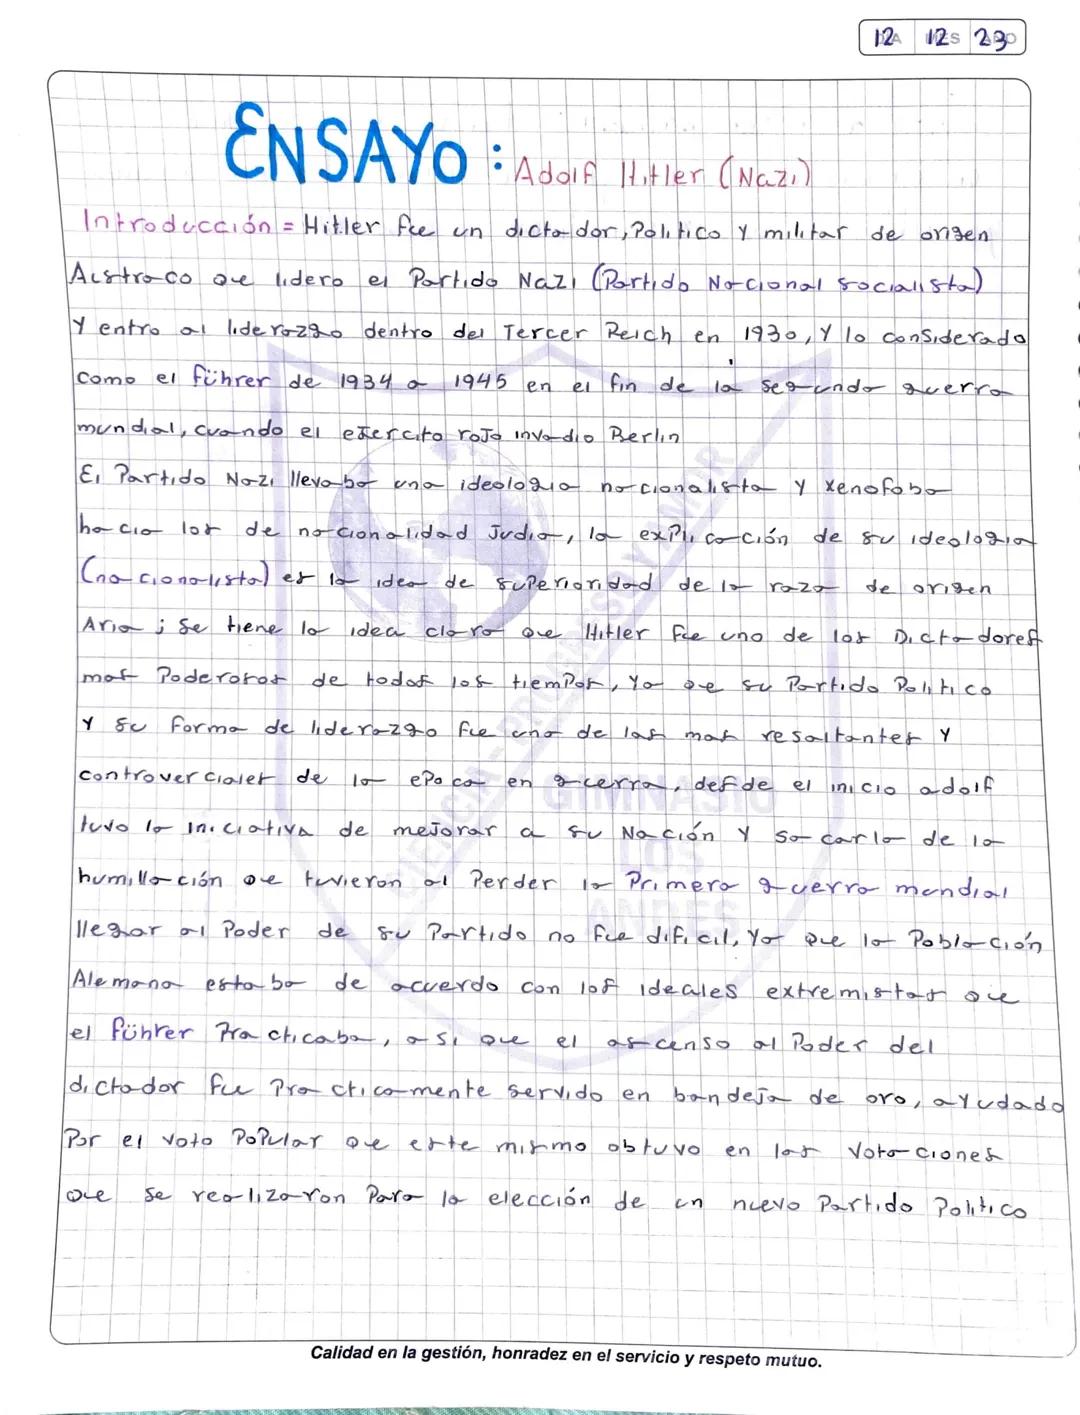 12 12 23
ENSAYO: Adolf Hitler (Nazi)
Introducción = Hitler fue un dictador, Politico y militar de origen
Austroco que lidero el Partido Nazi (Partido Nacional socialista)
Y entro al liderazgo dentro del Tercer Reich en 1930, y lo considerado
como el führer de 1934 a 1945 en el fin de la segunda guerra
mundial, cuando el ejercito rojo invadio Berlin
El Partido Nazi llevaba una ideologia nacionalista y xenofoba
hacia los de nacionalidad Judia, la explicación de su ideologia
(nacionalista) es la idea de superioridad de la raza de origen
Aria ; se tiene la idea clara que Hitler fue uno de los Dictadores
mas Poderosos de todos los tiempos, ya que su Partido Politico
y su forma de liderazgo fue una de las mas resaltantes y
controverciales de la epoca en guerra, desde el inicio adolf
tuvo la iniciativa de mejorar a su Nación y sacarla de la
humillación que tuvieron al Perder la Primera guerra mundial
llegar al Poder de su Partido no fue dificil, ya que la Población
Alemana estaba de acuerdo con los ideales extremistas que
el führer Practicaba, asi que el ascenso al Poder del
dictador fue Practicamente servido en bandeja de oro, ayudado
Por el voto Popular que este mismo obtuvo en las votaciones
que se realizaron Para la elección de un nuevo Partido Politico
GIMNASIO
LOS
ANDES
Calidad en la gestión, honradez en el servicio y respeto mutuo.